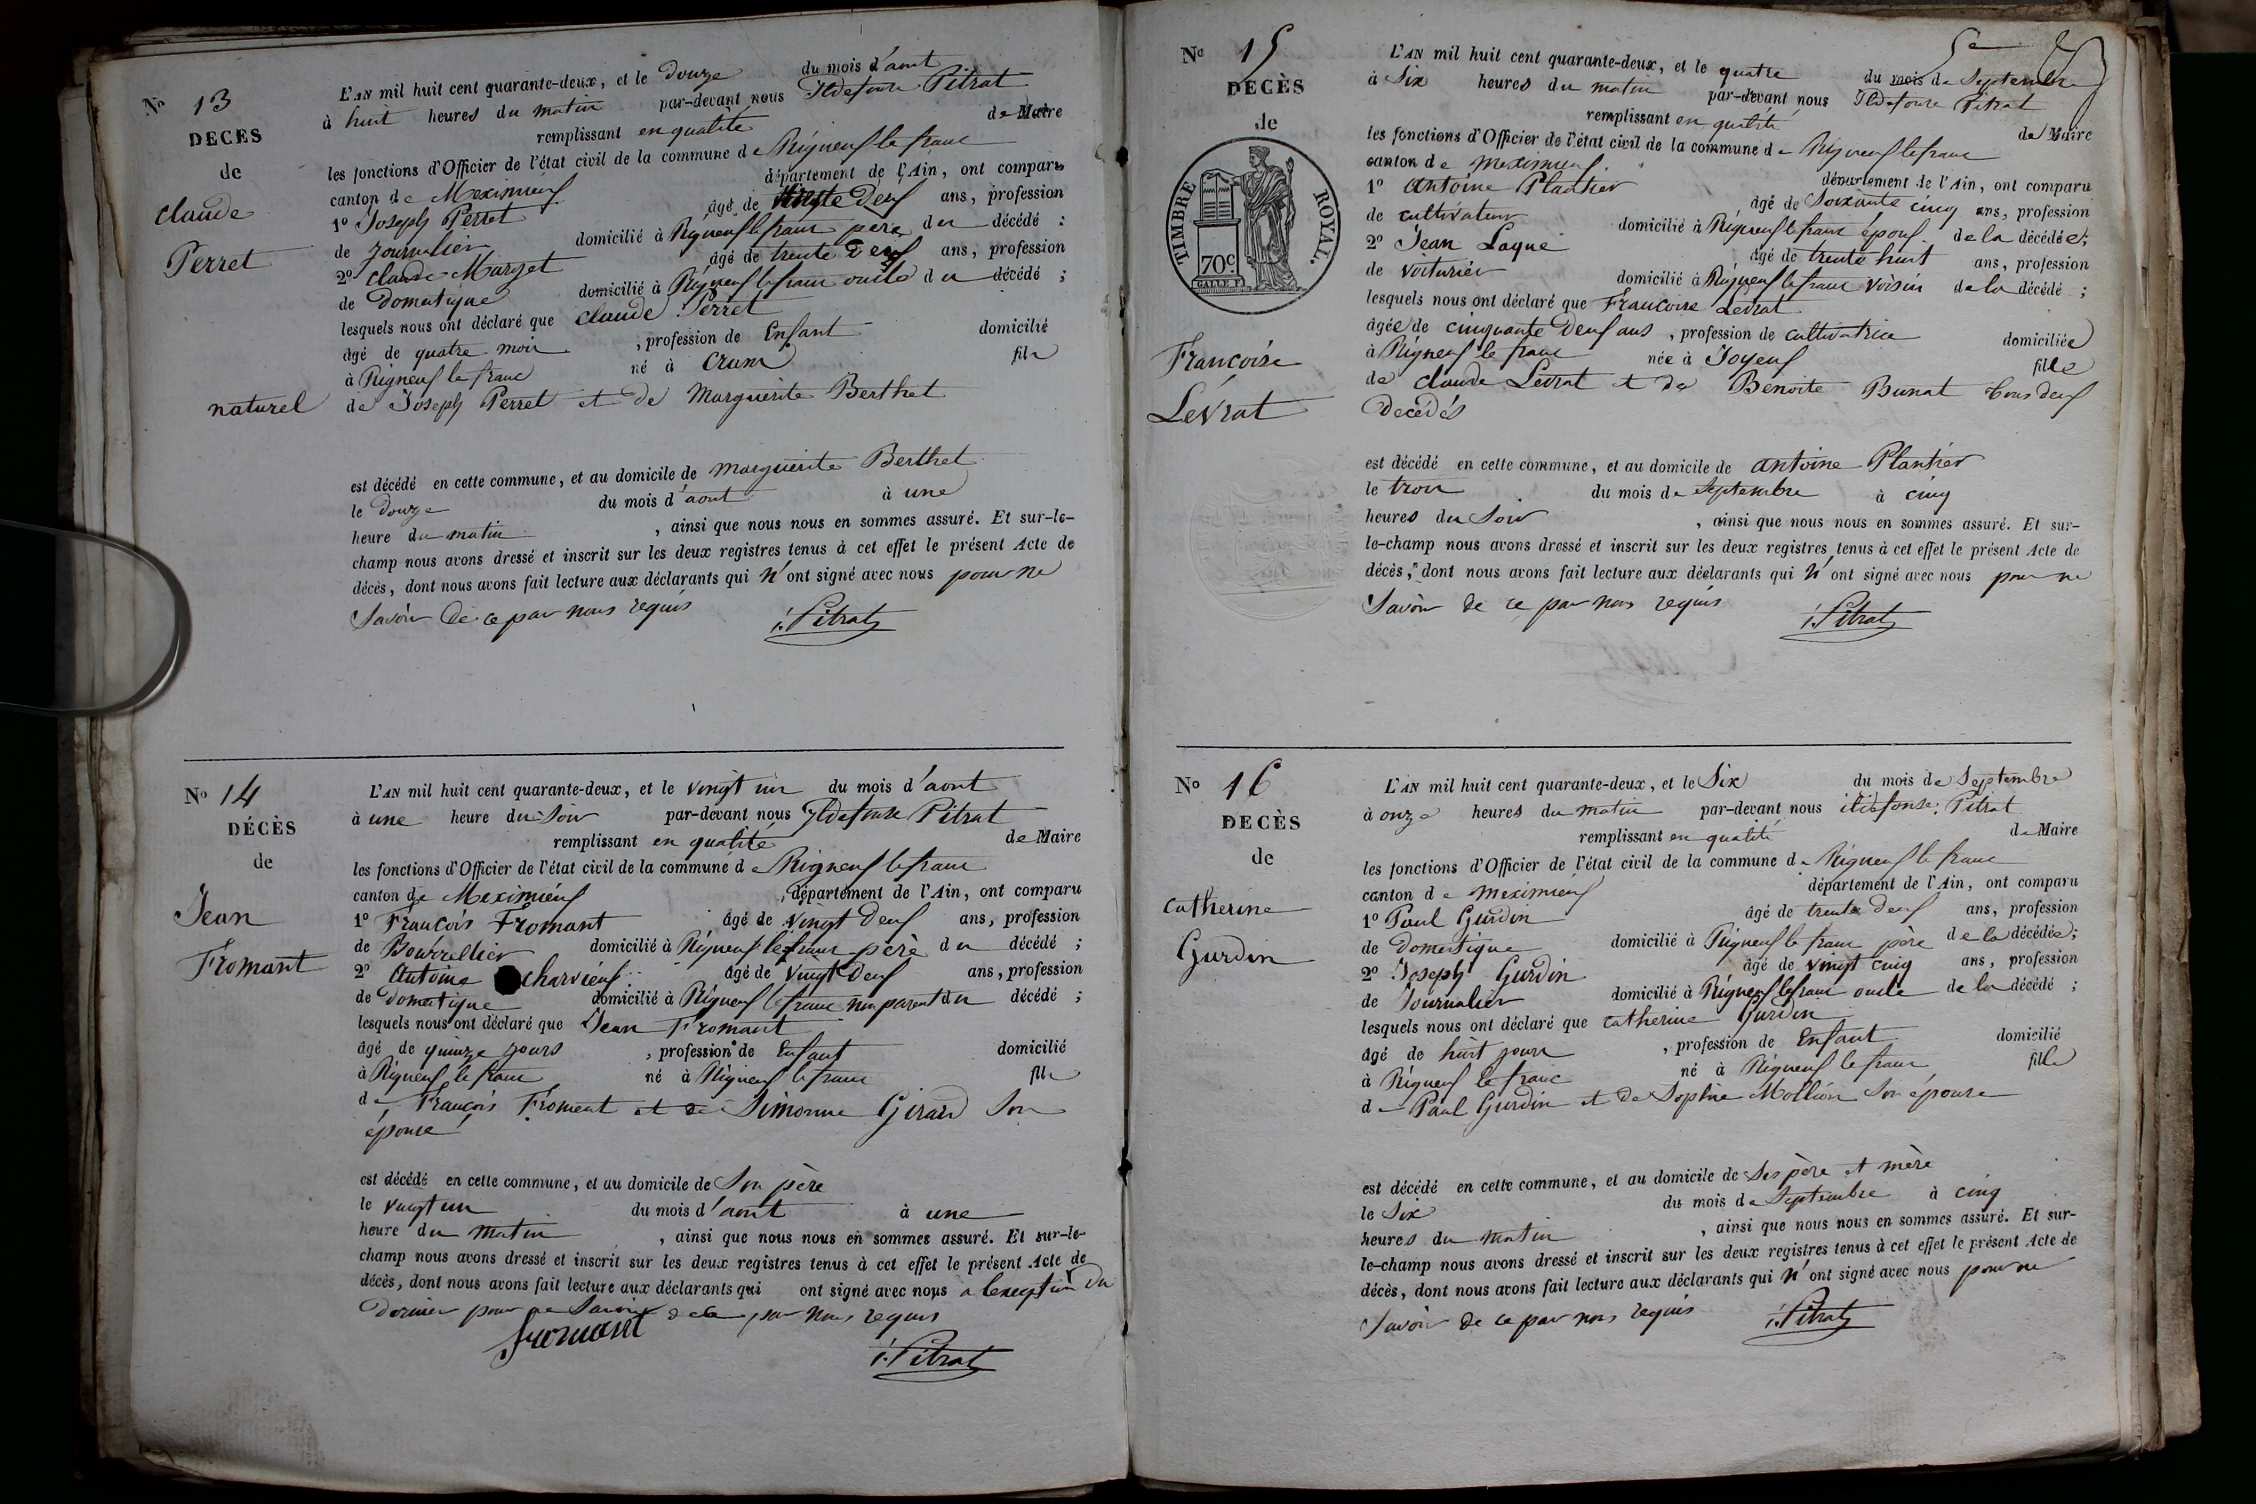 No 13
DECES
de
claude
Perret
naturel
L'AN mil huit cent quarante-deux, et le douze du mois d'aout
à huit heures du matin par-devant nous Ildefonse Pitrat
remplissant en qualité de Maire
les fonctions d'Officier de l'état civil de la commune de Rigneuf le franc
canton de Meximieuf département de l'Ain, ont comparu
1º Joseph Perret âgé de deuf ans, profession
de journalier domicilié à Rigneuf le franc père du décédé :
2º claude Marget âgé de trente deuf ans, profession
de Domestique domicilié à Rigneuf le franc oncle du décédé ;
lesquels nous ont déclaré que claude Perret
âgé de quatre mois , profession de Enfant domicilié
à Rigneuf le franc né à Crans fils
de Joseph Perret et de Marguerite Berthet
est décédé en cette commune, et au domicile de Marguerite Berthet
le douze du mois d'aout à une
heure du matin , ainsi que nous nous en sommes assuré. Et sur-le-
champ nous avons dressé et inscrit sur les deux registres tenus à cet effet le présent Acte de
décès, dont nous avons fait lecture aux déclarants qui n'ont signé avec nous pour ne
Savoir de ce par nous requis
i. Pitrat
No 14
DÉCÈS
de
Jean
Fromant
L'AN mil huit cent quarante-deux, et le vingt un du mois d'aout
à une heure du Soir par-devant nous Ildefonse Pitrat
remplissant en qualité de Maire
les fonctions d'Officier de l'état civil de la commune de Rigneuf le franc
canton de Meximieuf , département de l'Ain, ont comparu
1º Francois Fromant âgé de vingt deuf ans, profession
de Bourrellier domicilié à Rigneuf le franc père du décédé ;
2º Antoine Charvieuf âgé de vingt deuf ans, profession
de domestique domicilié à Rigneuf le franc non parent du décédé ;
lesquels nous ont déclaré que Jean Fromant
âgé de quinze jours , profession de Enfant domicilié
à Rigneuf le franc né à Rigneuf le franc fils
de Francois Froment et de Simonne Girard Son
épouse
est décédé en cette commune, et au domicile de Son père
le vingt un du mois d'aout à une
heure du matin , ainsi que nous nous en sommes assuré. Et sur-le-
champ nous avons dressé et inscrit sur les deux registres tenus à cet effet le présent Acte de
décès, dont nous avons fait lecture aux déclarants qui ont signé avec nous a lexception du
dernier pour ne Savoir de ce par nous requis
fromant
i. Pitrat
5e
No 15
DECÈS
de
TIMBRE ROYAL.
70c.
Francoise
Levrat
L'AN mil huit cent quarante-deux, et le quatre du mois de Septembre
à Six heures du matin par-devant nous Ildefonse Pitrat
remplissant en qualité de Maire
les fonctions d'Officier de l'état civil de la commune de Rigneuf le franc
canton de meximieuf département de l'Ain, ont comparu
1º Antoine Plantier âgé de Soixante cinq ans, profession
de cultivateur domicilié à Rigneuf le franc épouf de la décédée;
2º Jean Laqué âgé de trente huit ans, profession
de voiturier domicilié à Rigneuf le franc voisin de la décédé ;
lesquels nous ont déclaré que Francoise Levrat
âgée de cinquante deuf ans , profession de cultivatrice domiciliée
à Rigneuf le franc née à Joyeuf fille
de claude Levrat et de Benoite Bunat tous deuf
Décédés
est décédé en cette commune, et au domicile de Antoine Plantier
le trois du mois de Septembre à cinq
heures du Soir , ainsi que nous nous en sommes assuré. Et sur-
le-champ nous avons dressé et inscrit sur les deux registres tenus à cet effet le présent Acte de
décès, dont nous avons fait lecture aux déclarants qui n'ont signé avec nous pour ne
Savoir de ce par nous requis
i. Pitrat
No 16
DECÈS
de
Catherine
Gurdin
L'AN mil huit cent quarante-deux, et le Six du mois de Septembre
à onze heures du matin par-devant nous ildefonse Pitrat
remplissant en qualité de Maire
les fonctions d'Officier de l'état civil de la commune de Rigneuf le franc
canton de meximieuf département de l'Ain, ont comparu
1º Paul Gurdin âgé de trente deuf ans, profession
de domestique domicilié à Rigneuf le franc père de la décédée;
2º Joseph Gurdin âgé de vingt cinq ans, profession
de Journalier domicilié à Rigneuf le franc oncle de la décédé ;
lesquels nous ont déclaré que Catherine Gurdin
âgé de huit jours , profession de Enfant domicilié
à Rigneuf le franc né à Rigneuf le franc fille
de Paul Gurdin et de Sophie Mollion Son épouse
est décédé en cette commune, et au domicile de Ses père et mère
le Six du mois de Septembre à cinq
heures du matin , ainsi que nous nous en sommes assuré. Et sur-
le-champ nous avons dressé et inscrit sur les deux registres tenus à cet effet le présent Acte de
décès, dont nous avons fait lecture aux déclarants qui n'ont signé avec nous pour ne
Savoir de ce par nous requis
i. Pitrat